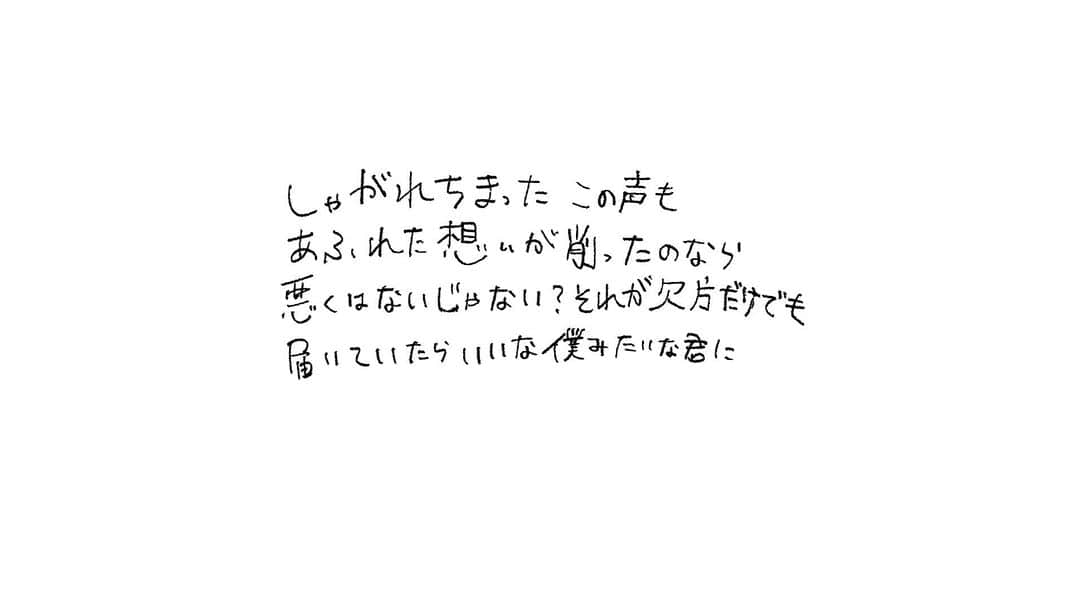 しゃがれちまった この声も
あふれた想いが削ったのなら
悪くはないじゃない？それが欠片だけでも
届いていたらいいな僕みたいな君に